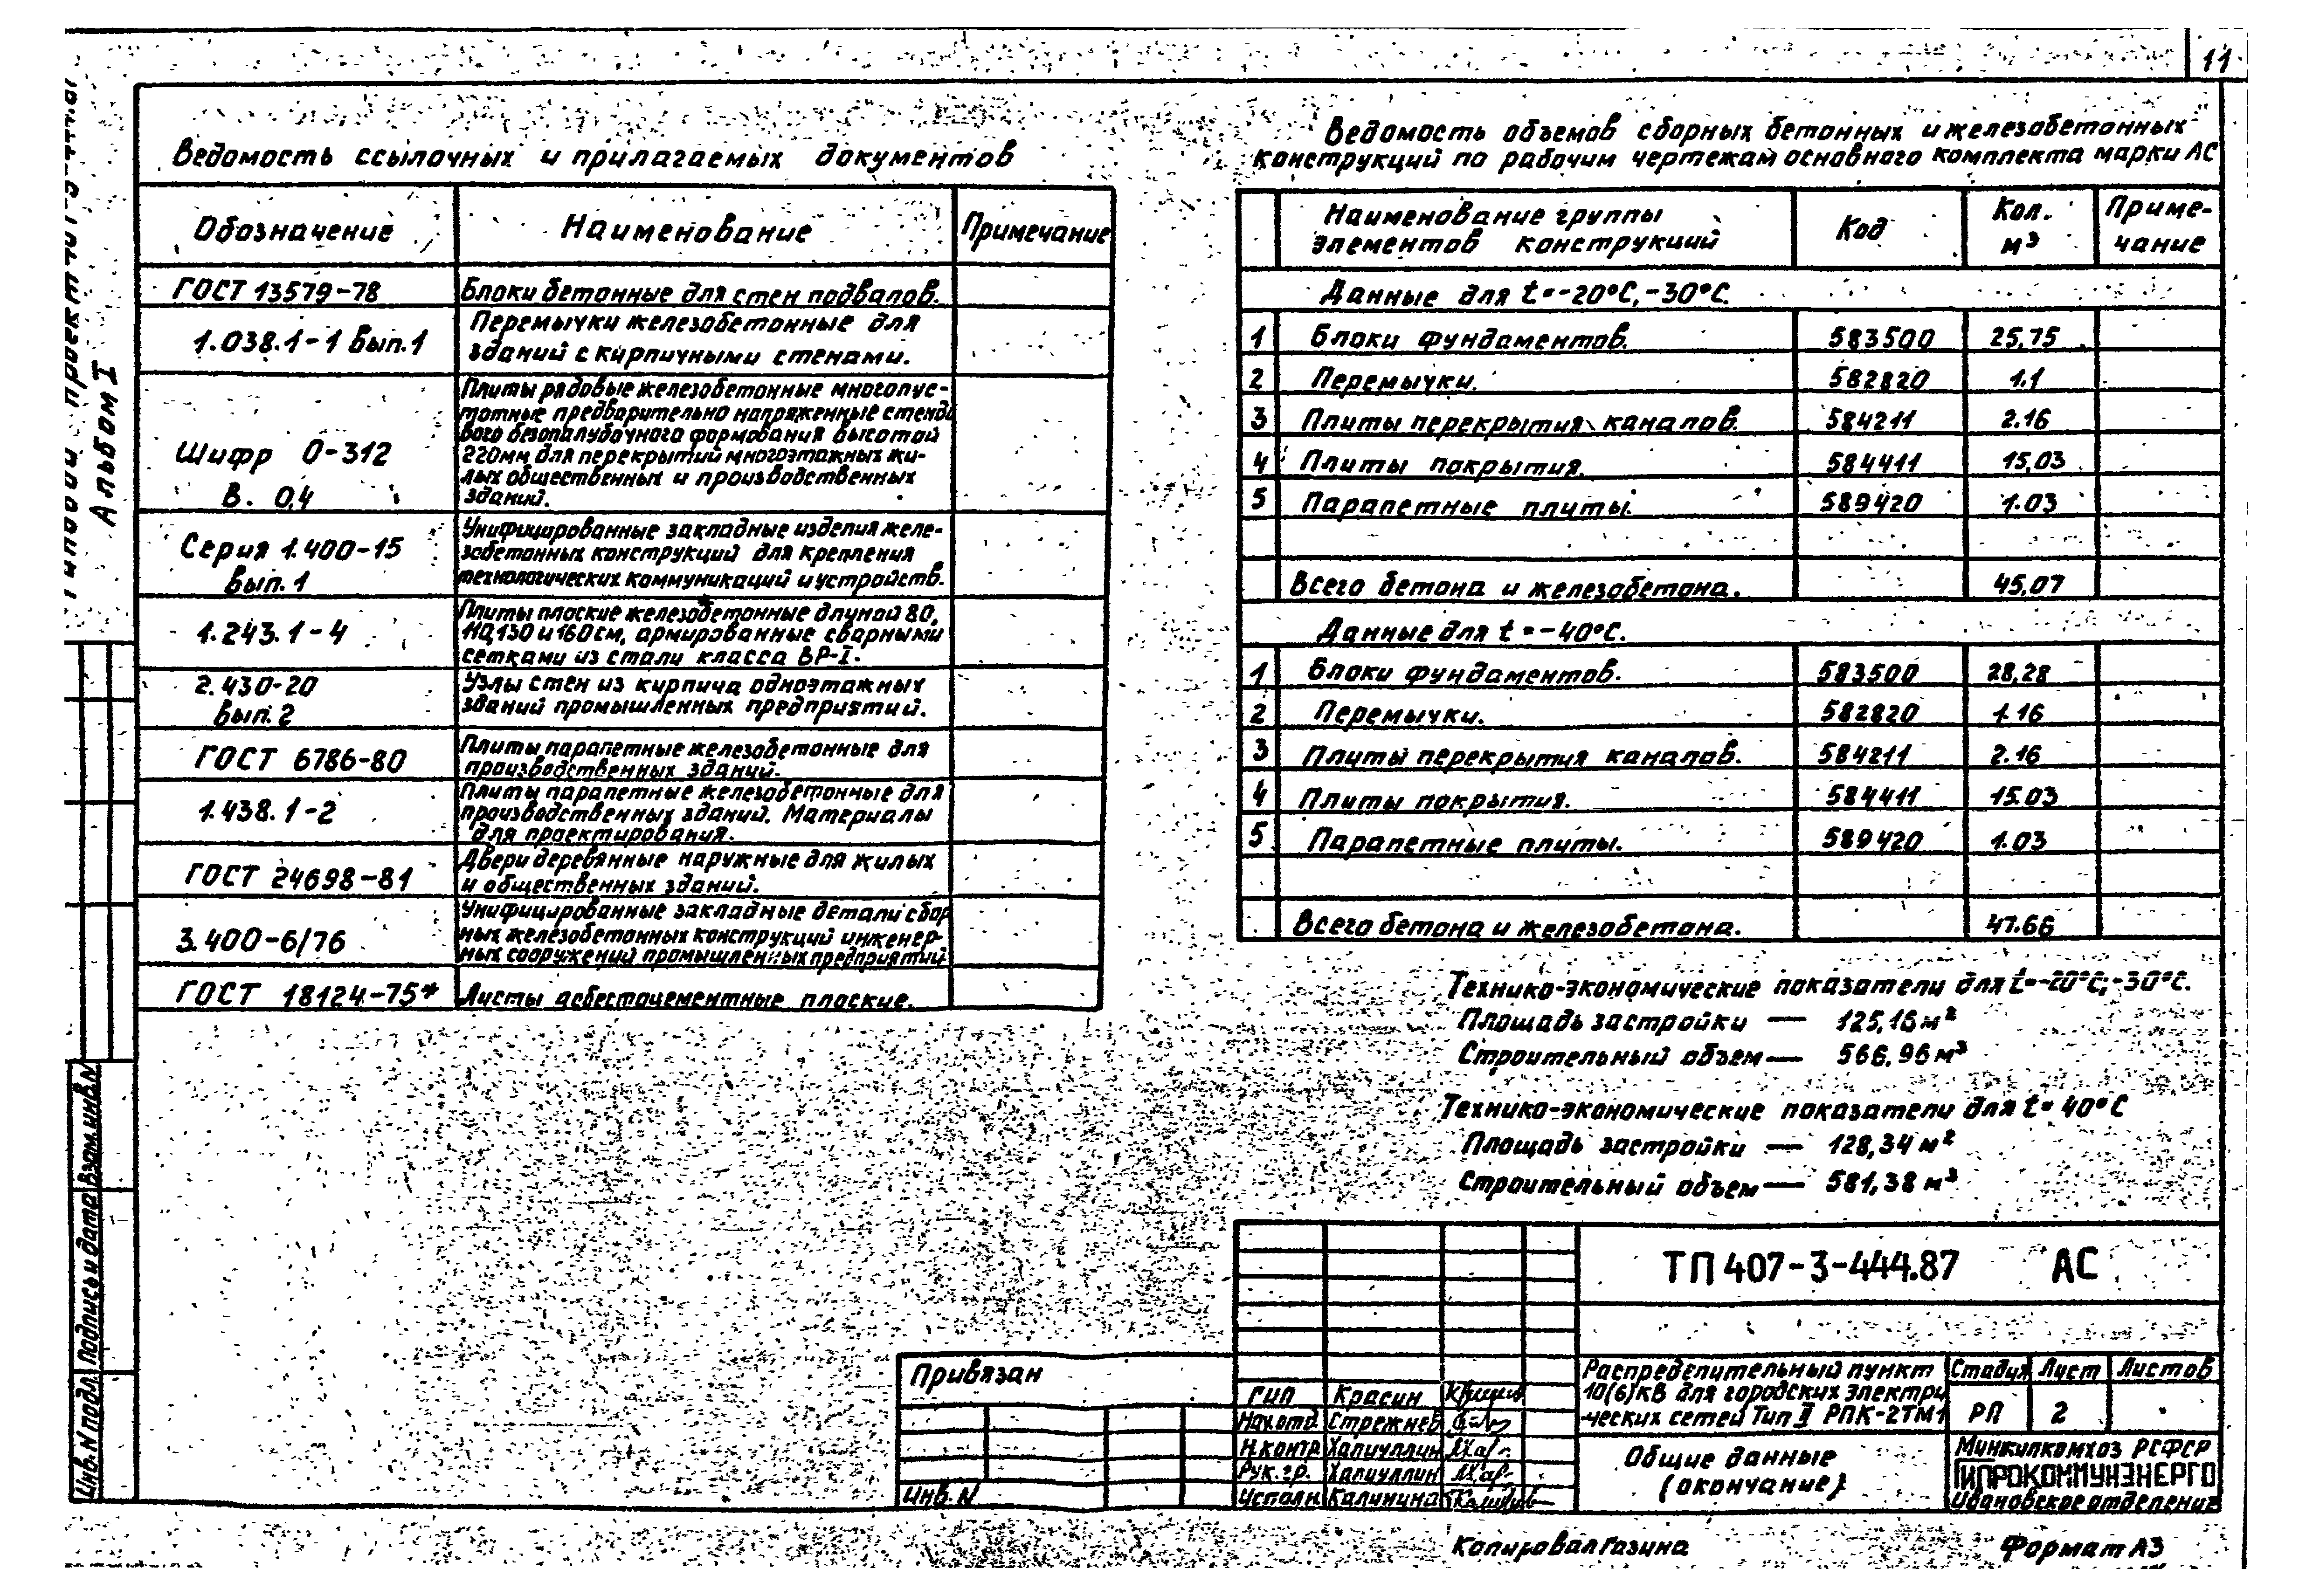 11
Типовой проект 407-3-444.87
Альбом I
Ведомость ссылочных и прилагаемых документов
Обозначение Наименование Примечание
ГОСТ 13579-78 Блоки бетонные для стен подвалов.
1.038.1-1 Вып.1 Перемычки железобетонные для
зданий с кирпичными стенами.
Шифр 0-312
В. 0,4
Плиты рядовые железобетонные многопус-
тотные предварительно напряженные стендо
вого безопалубочного формования высотой
220мм для перекрытий многоэтажных жи-
лых общественных и производственных
зданий.
Серия 1.400-15
Вып.1
Унифицированные закладные изделия желе-
зобетонных конструкций для крепления
технологических коммуникаций и устройств.
1.243.1-4
Плиты плоские железобетонные длиной 80,
110,130 и 160 см, армированные сварными
сетками из стали класса ВР-I.
2.430-20
Вып.2
Узлы стен из кирпича одноэтажных
зданий промышленных предприятий.
ГОСТ 6786-80
Плиты парапетные железобетонные для
производственных зданий.
1.438.1-2
Плиты парапетные железобетонные для
производственных зданий. Материалы
для проектирования.
ГОСТ 24698-81
Двери деревянные наружные для жилых
и общественных зданий.
3.400-6/76
Унифицированные закладные детали сбор
ных железобетонных конструкций инженер-
ных сооружений промышленных предприятий.
ГОСТ 18124-75* Листы асбестоцементные плоские.
Ведомость объемов сборных бетонных и железобетонных
конструкций по рабочим чертежам основного комплекта марки АС
Наименование группы
элементов конструкций
Код
Кол.
м³
Приме-
чание
Данные для t=-20°С,-30°С.
1 Блоки фундаментов. 583500 25,75
2 Перемычки. 582820 1.1
3 Плиты перекрытия каналов. 584211 2.16
4 Плиты покрытия. 584411 15,03
5 Парапетные плиты. 589420 1.03
Всего бетона и железобетона. 45,07
Данные для t=-40°С.
1 Блоки фундаментов. 583500 28,28
2 Перемычки. 582820 1.16
3 Плиты перекрытия каналов. 584211 2.16
4 Плиты покрытия. 584411 15.03
5 Парапетные плиты. 589420 1.03
Всего бетона и железобетона. 47.66
Технико-экономические показатели для t=-20°С,-30°С.
Площадь застройки — 125,16 м²
Строительный объем — 566,96 м³
Технико-экономические показатели для t=40°С
Площадь застройки — 128,34 м²
Строительный объем — 581,38 м³
ТП 407-3-444.87 АС
Привязан
Инв.N
ГИП Красин
Нач.отд. Стрежнев
Н.контр Халиуллин
Рук.гр. Халиуллин
Исполн. Калинина
Распределительный пункт
10(6)кВ для городских электри
ческих сетей Тип II РПК-2ТМ1
Стадия Лист Листов
РП 2
Общие данные
(окончание)
Минжилкомхоз РСФСР
ГИПРОКОММУНЭНЕРГО
Ивановское отделение
Взам.инв.N
Подпись и дата
Инв.N подл.
Копировал Газина
Формат А3